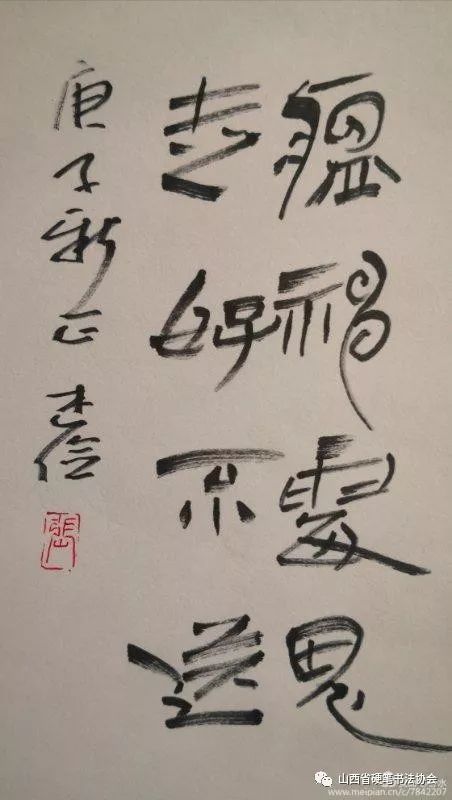 瘟祸鬼
走好不送
庚子新正
山西省硬笔书法协会
www.meipian.cn/c/7842207